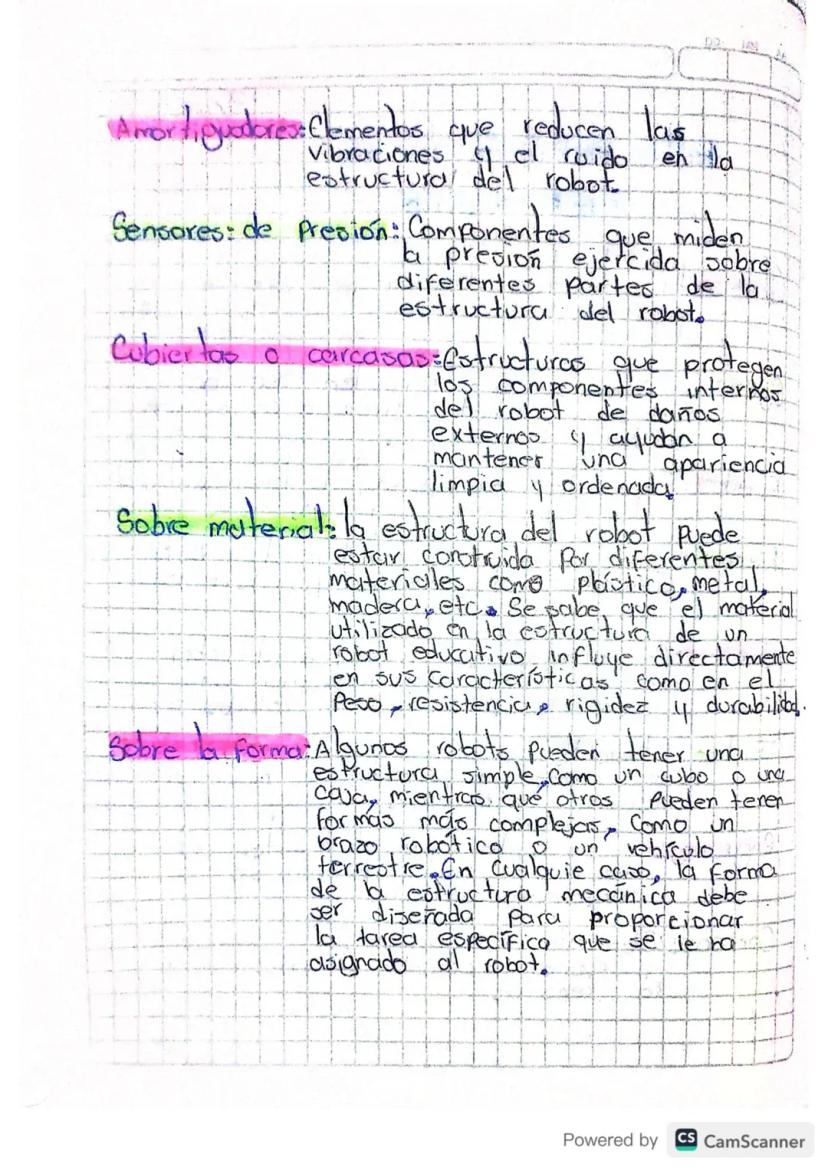 Amortiguadores: Elementos que reducen las
vibraciones y el ruido en la
estructura del robot.
Sensores: de Presión: Componentes que miden
la presión ejercida sobre
diferentes partes de la
estructura del robot.
Cubiertas o carcasas: Estructuras que protegen
los componentes internos
del robot de daños
externos y ayudan a
mantener una apariencia
limpia y ordenada.
Sobre material: la estructura del robot puede
estar construida por diferentes
materiales como plástico, metal,
madera, etc. Se sabe que el material
utilizado en la estructura de un
robot educativo influye directamente
en sus características como en el
Peso, resistencia, rigidez y durabilidad.
Sobre la forma: Algunos robots pueden tener una
estructura simple, como un cubo o una
caja, mientras que otros pueden tener
formas más complejas, como un
brazo robótico o un vehículo
terrestre. En cualquie caso, la forma
de la estructura mecánica debe
ser diseñada para proporcionar
la tarea específica que se le ha
asignado al robot.
Powered by CS CamScanner